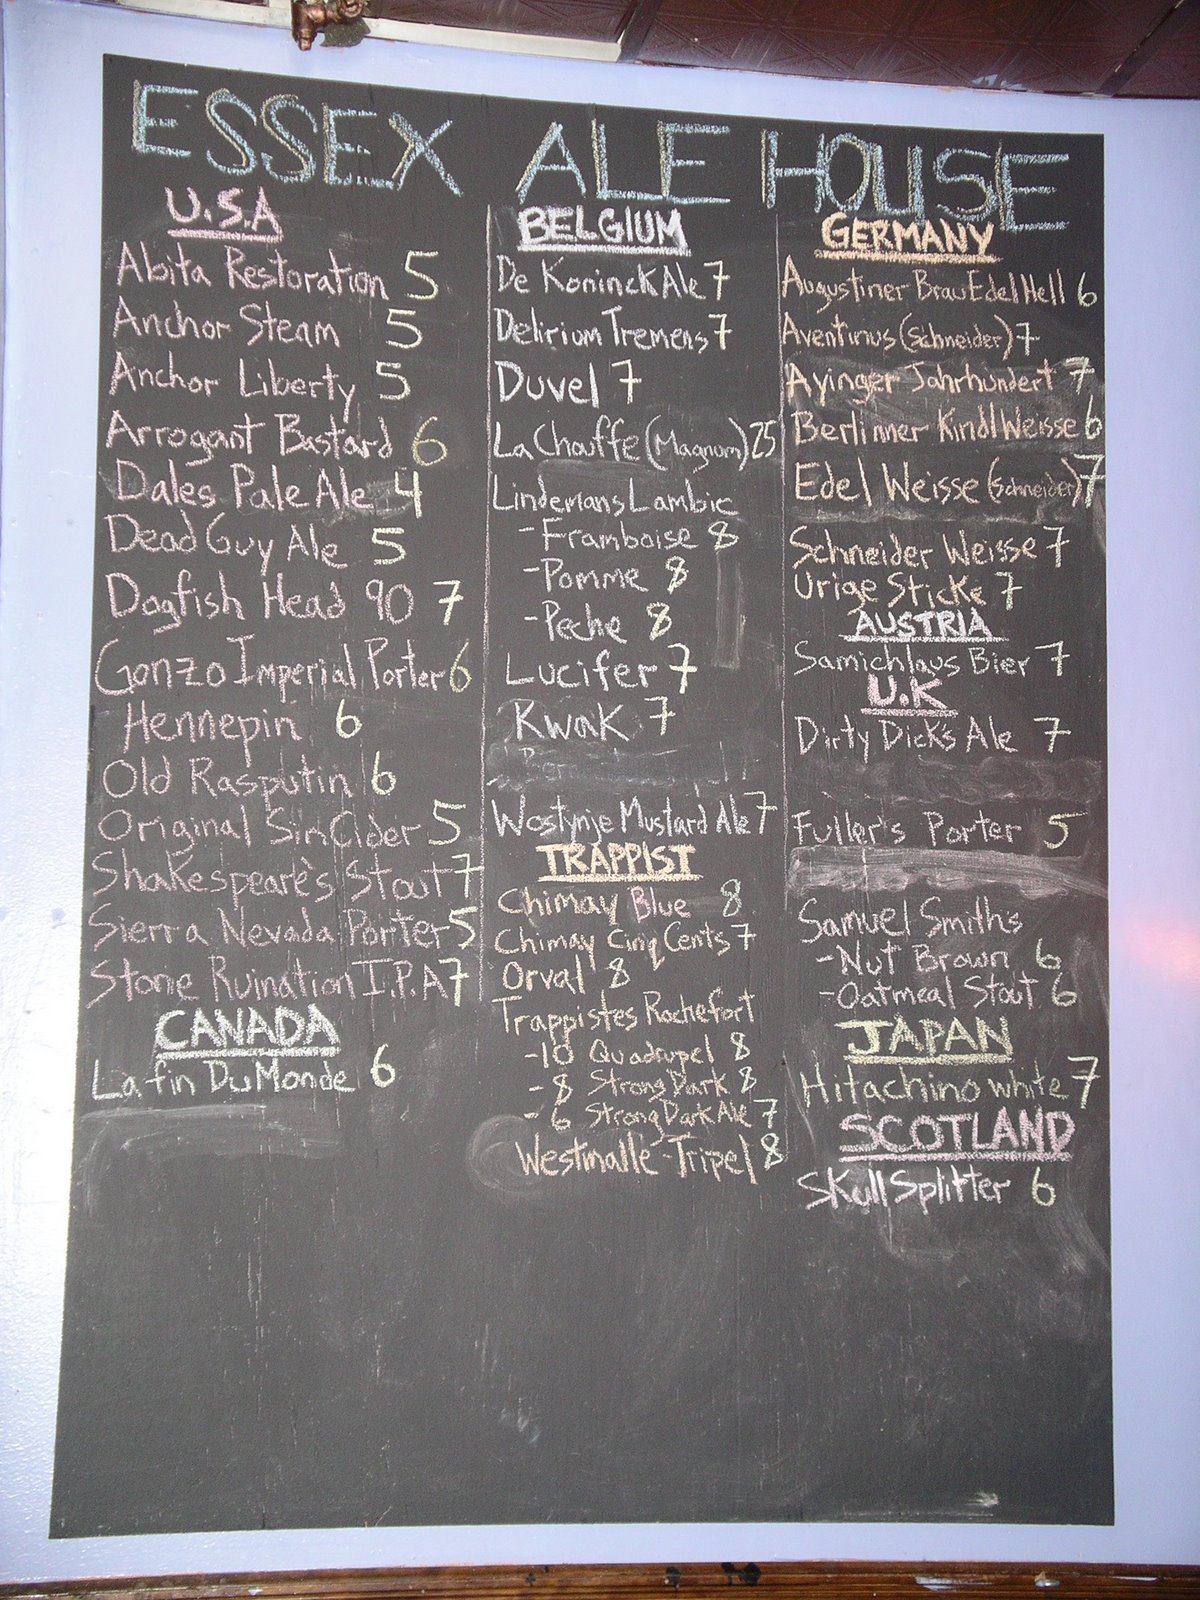 ESSEX ALE HOUSE
U.S.A
Abita Restoration 5
Anchor Steam 5
Anchor Liberty 5
Arrogant Bastard 6
Dales Pale Ale 4
Dead Guy Ale 5
Dogfish Head 90 7
Gonzo Imperial Porter 6
Hennepin 6
Old Rasputin 6
Original Sin Cider 5
Shakespeare's Stout 7
Sierra Nevada Porter 5
Stone Ruination I.P.A 7
CANADA
La fin Du Monde 6
BELGIUM
De Koninck Ale 7
Delirium Tremens 7
Duvel 7
La Chouffe (Magnum) 25
Lindemans Lambic
-Framboise 8
-Pomme 8
-Peche 8
Lucifer 7
Kwak 7
Wostynje Mustard Ale 7
TRAPPIST
Chimay Blue 8
Chimay Cinq Cents 7
Orval 8
Trappistes Rochefort
-10 Quadrupel 8
-8 Strong Dark 8
-6 Strong Dark Ale 7
Westmalle-Tripel 8
GERMANY
Augustiner Brau Edel Hell 6
Aventinus (Schneider) 7
Ayinger Jahrhundert 7
Berlinner Kindl Weisse 6
Edel Weisse (Schneider) 7
Schneider Weisse 7
Urige Sticke 7
AUSTRIA
Samichlaus Bier 7
U.K
Dirty Dick's Ale 7
Fuller's Porter 5
Samuel Smiths
-Nut Brown 6
-Oatmeal Stout 6
JAPAN
Hitachino white 7
SCOTLAND
Skull Splitter 6